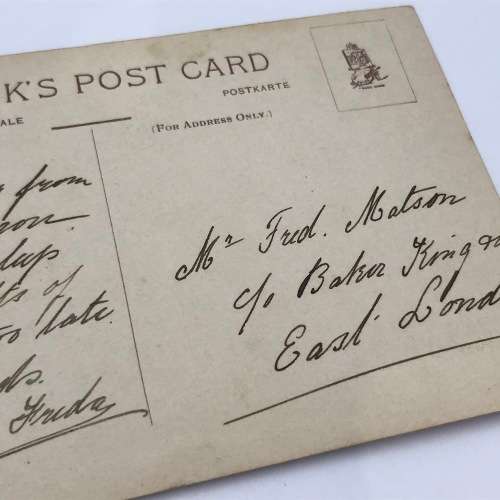 K'S POST CARD
ALE
POSTKARTE
(FOR ADDRESS ONLY.)
from
late.
Freda
Mr Fred. Matson
c/o Baker King &
East Lond